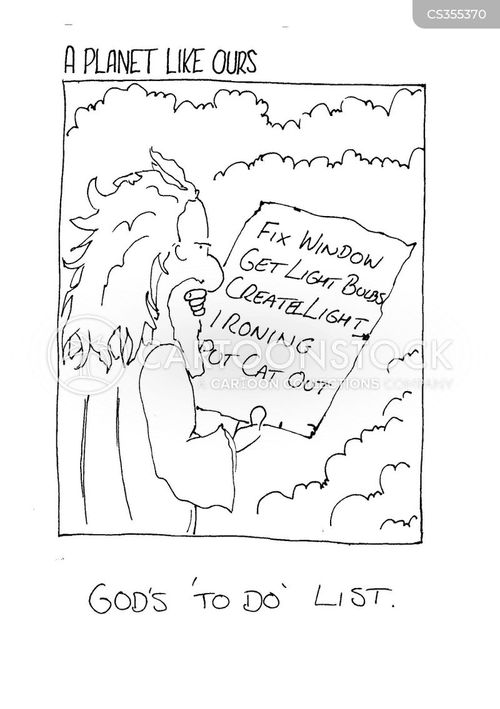 CS355370
A PLANET LIKE OURS
FIX WINDOW
GET LIGHT BULBS
CREATE LIGHT
IRONING
PUT CAT OUT
CARTOONSTOCK
A CARTOON COLLECTIONS COMPANY
GOD'S 'TO DO' LIST.